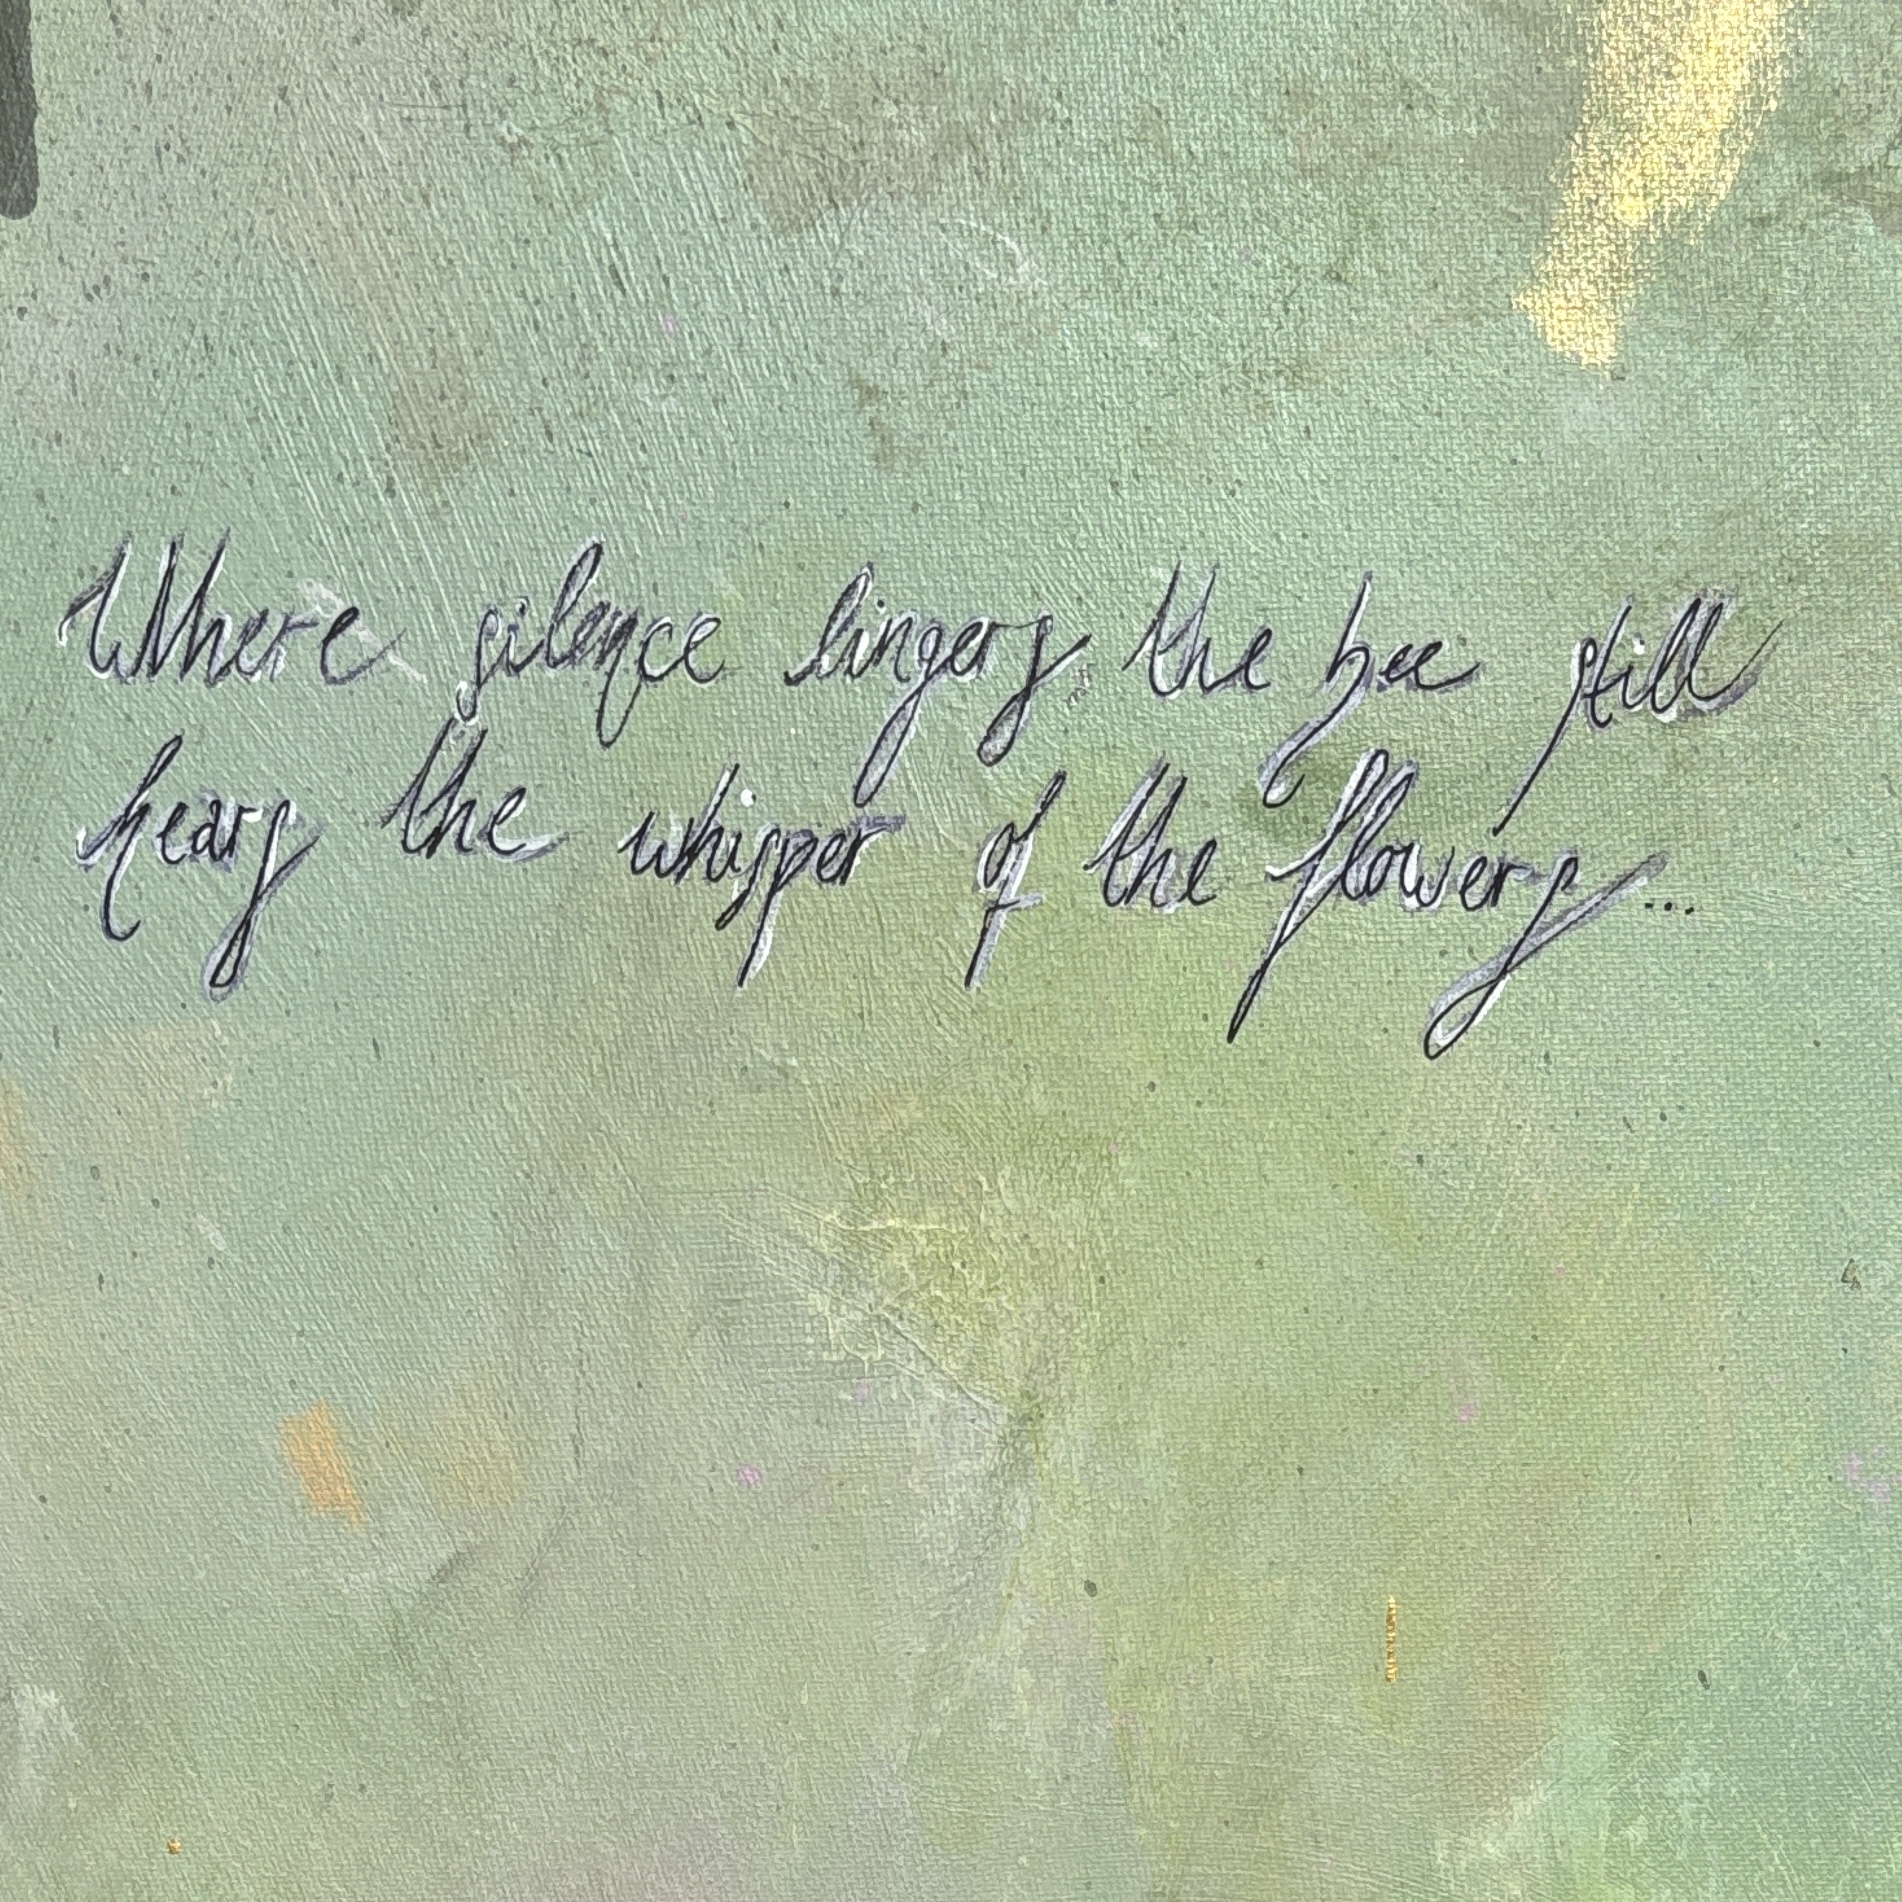 Where silence lingers the bee still
hears the whisper of the flowers...